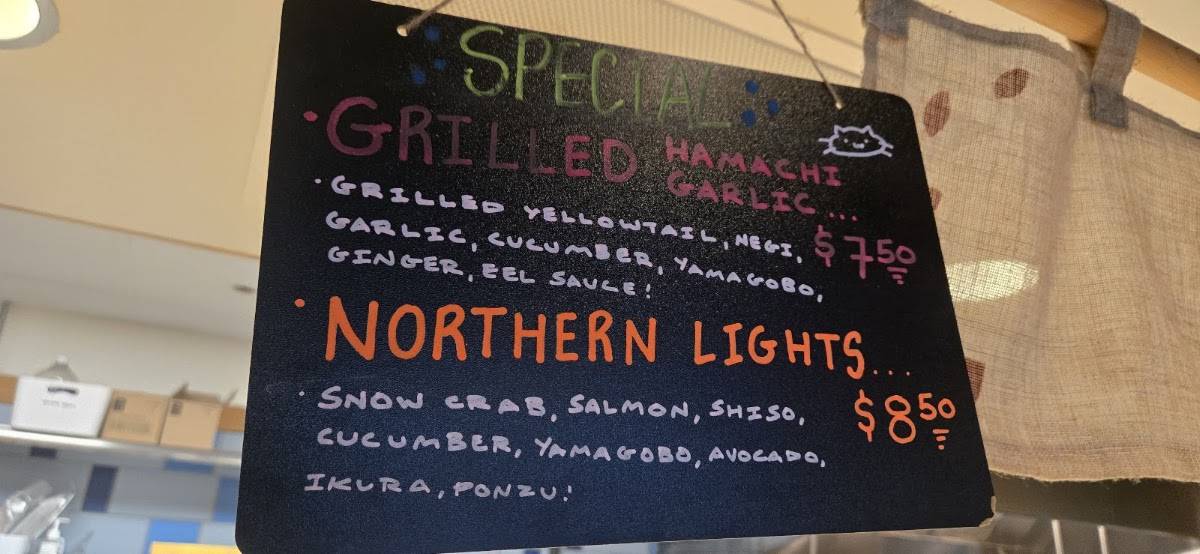 SPECIAL
• GRILLED HAMACHI
GARLIC...
• GRILLED YELLOWTAIL, NEGI,
GARLIC, CUCUMBER, YAMAGOBO,
GINGER, EEL SAUCE!
$7.50
• NORTHERN LIGHTS...
• SNOW CRAB, SALMON, SHISO,
CUCUMBER, YAMAGOBO, AVOCADO,
IKURA, PONZU!
$8.50